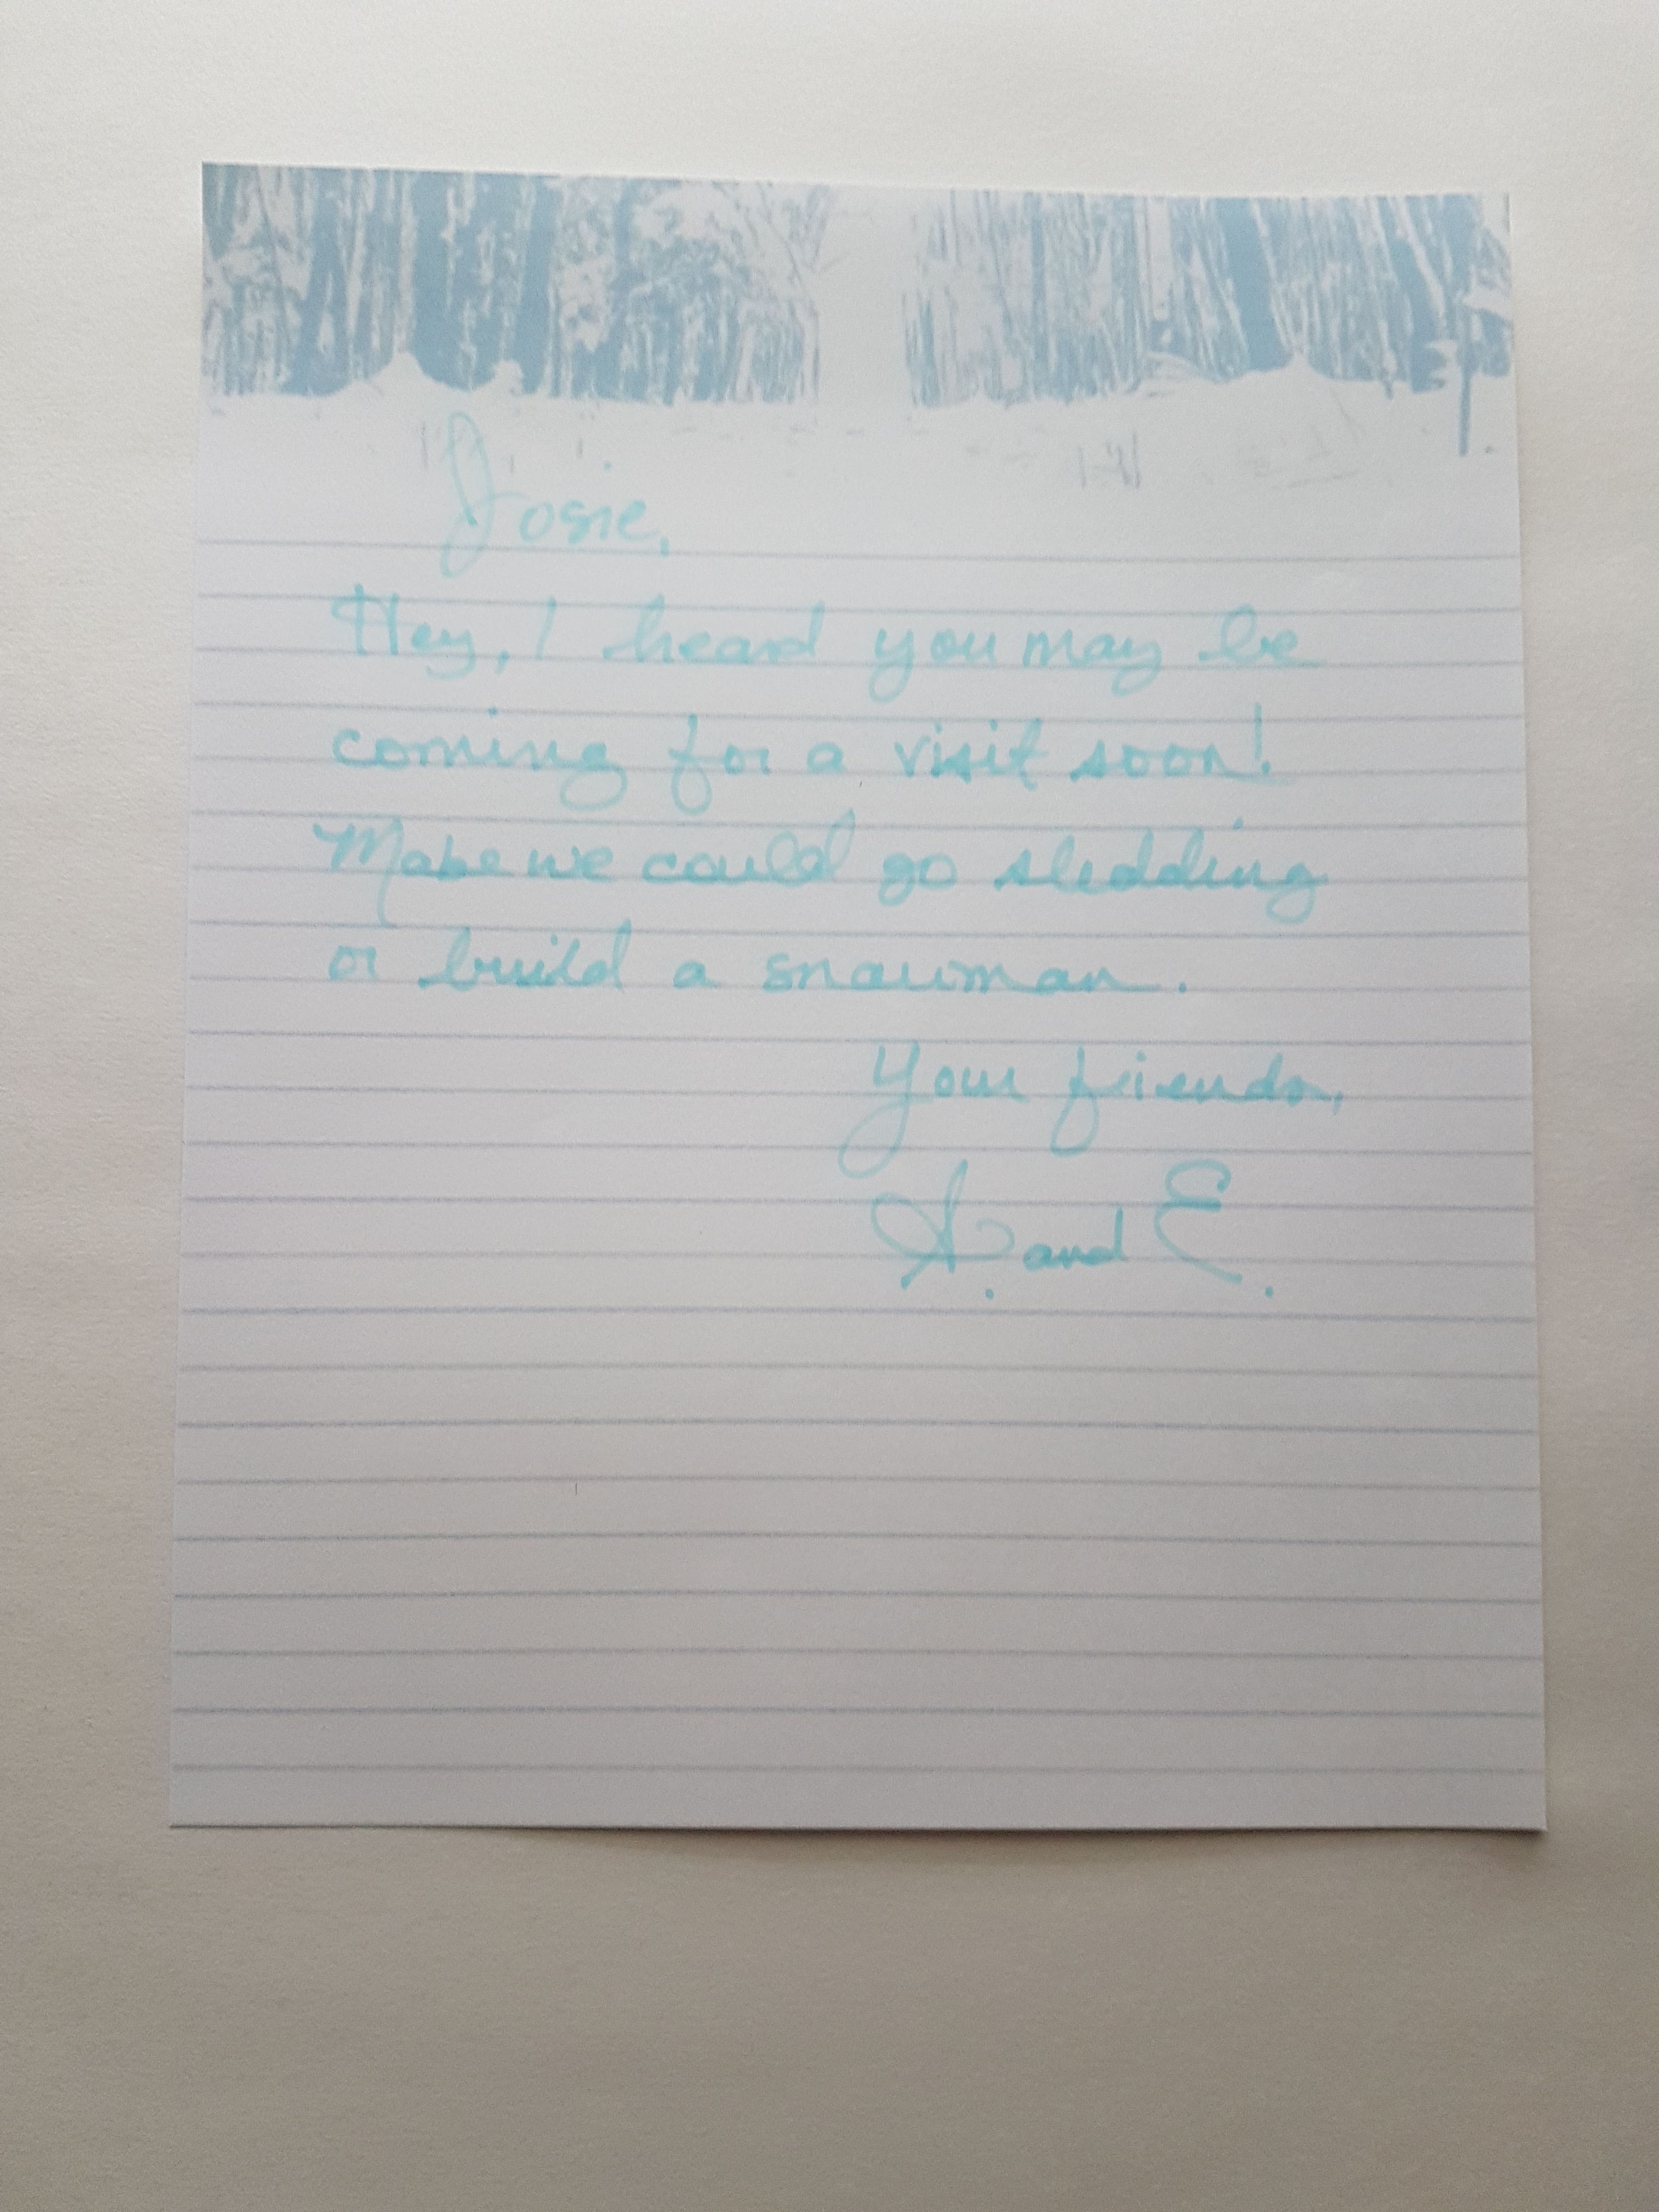 Josie,
Hey, I heard you may be
coming for a visit soon!
Mabe we could go sledding
or build a snowman.
Your friends,
and E.